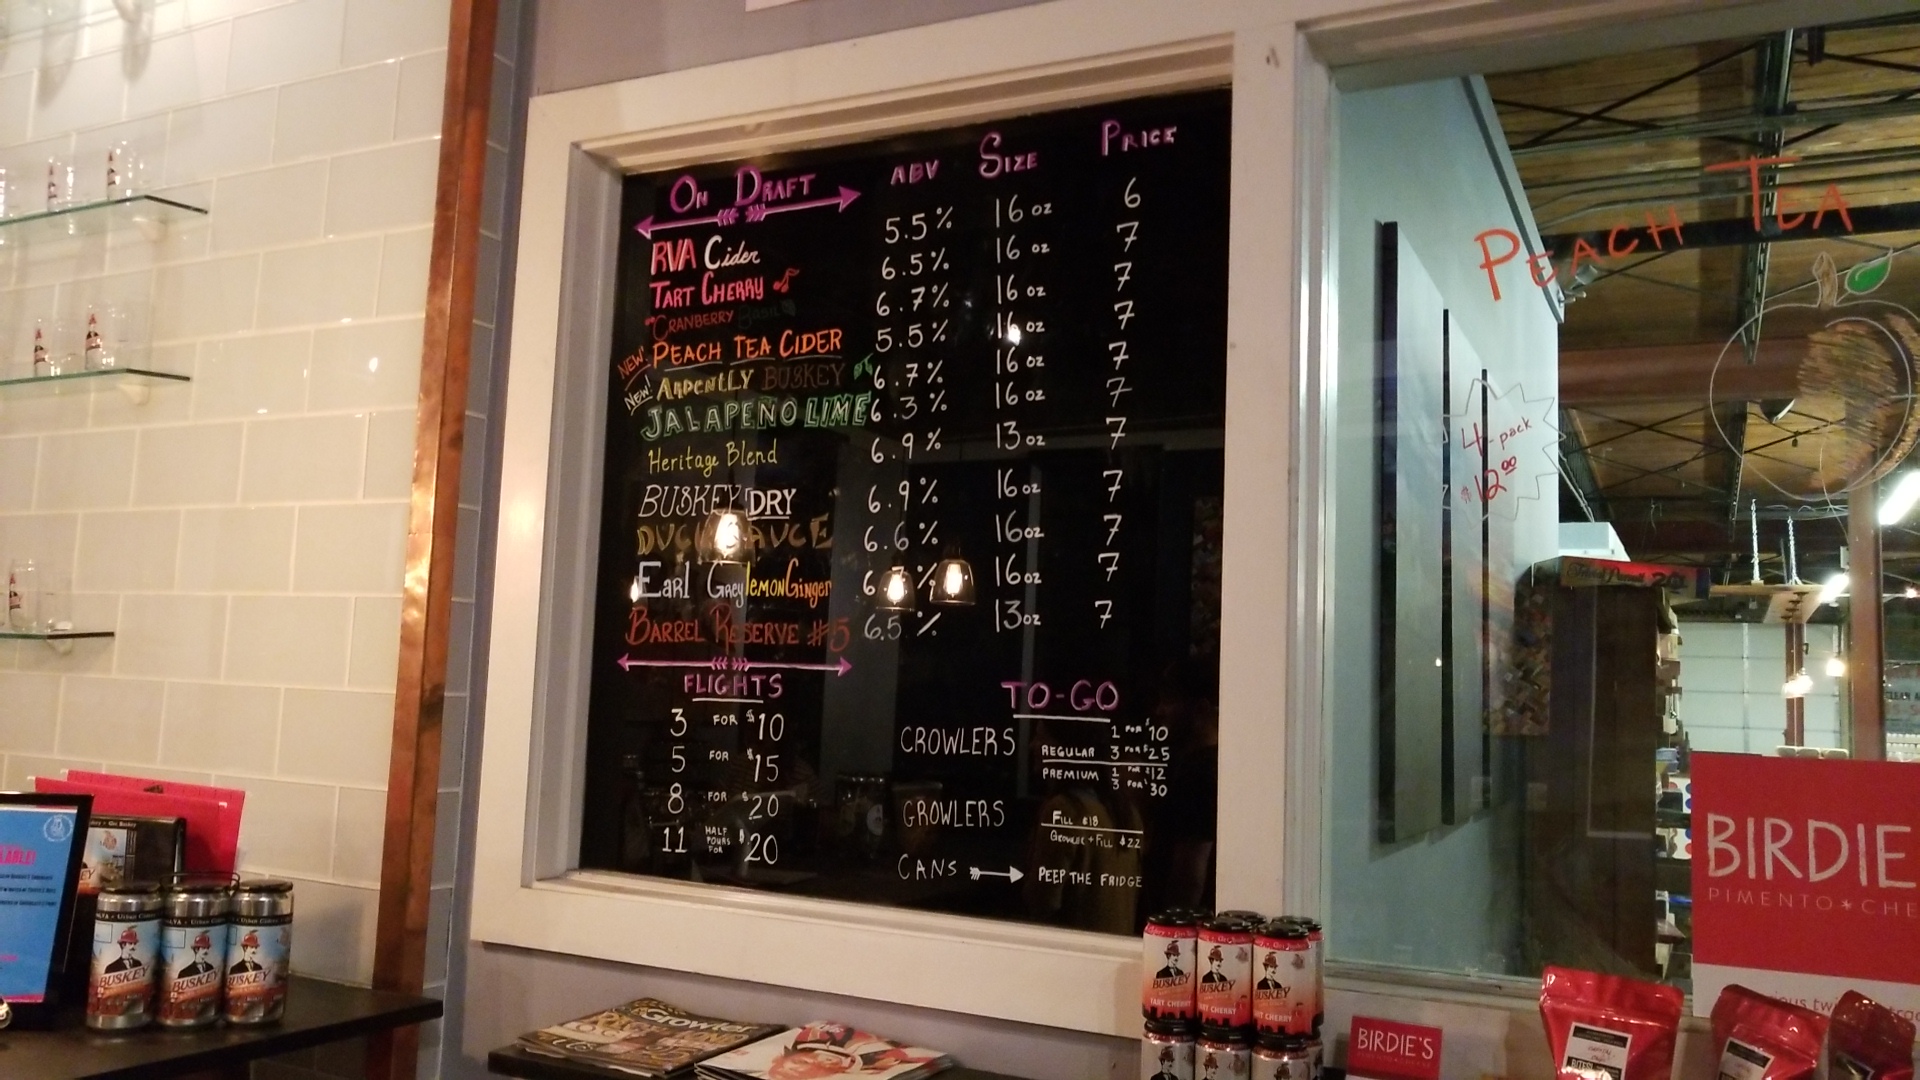 On Draft ABV Size Price
RVA Cider 5.5% 16 oz 6
Tart Cherry 6.5% 16 oz 7
Cranberry Basil 6.7% 16 oz 7
New! Peach Tea Cider 5.5% 16 oz 7
New! Ardently Buskey 6.7% 16 oz 7
JALAPENO LIME 6.3% 16 oz 7
Heritage Blend 6.9% 13 oz 7
BUSKEY DRY 6.9% 16oz 7
DUCK SAUCE 6.6% 16oz 7
Earl Grey lemon Ginger % 16oz 7
Barrel Reserve #5 6.5% 13oz 7
FLIGHTS
3 FOR $10
5 FOR $15
8 FOR $20
11 HALF POURS FOR $20
TO-GO
CROWLERS
REGULAR 1 FOR $10
3 FOR $25
PREMIUM 1 FOR $12
3 FOR $30
GROWLERS
Fill $18
Growler + Fill $22
CANS PEEP THE FRIDGE
PEACH TEA
4 pack
$12.00
BIRDIE
PIMENTO CHE
BIRDIE'S
BUSKEY
BUSKEY
BUSKEY
BUSKEY
TART CHERRY
BUSKEY
TART CHERRY
BUSKEY
Growler